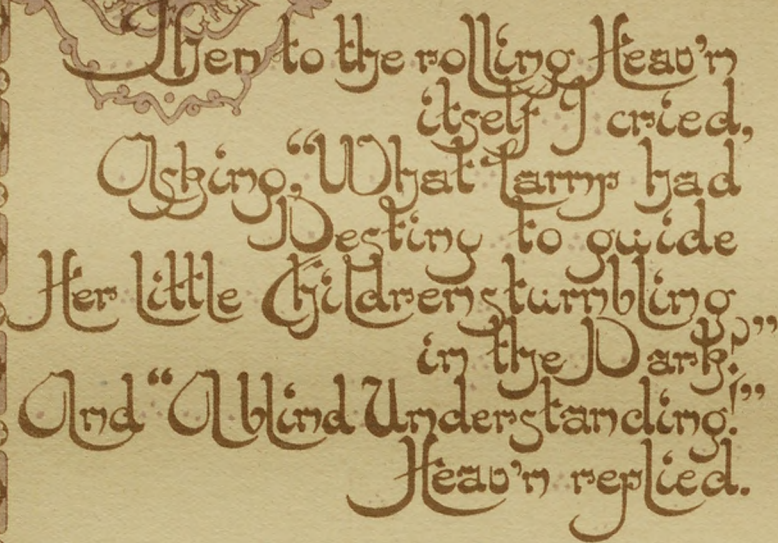 Then to the rolling Heav'n
itself I cried,
Asking, "What Lamp had
Destiny to guide
Her little Children stumbling
in the Dark?"
And "A blind Understanding!"
Heav'n replied.